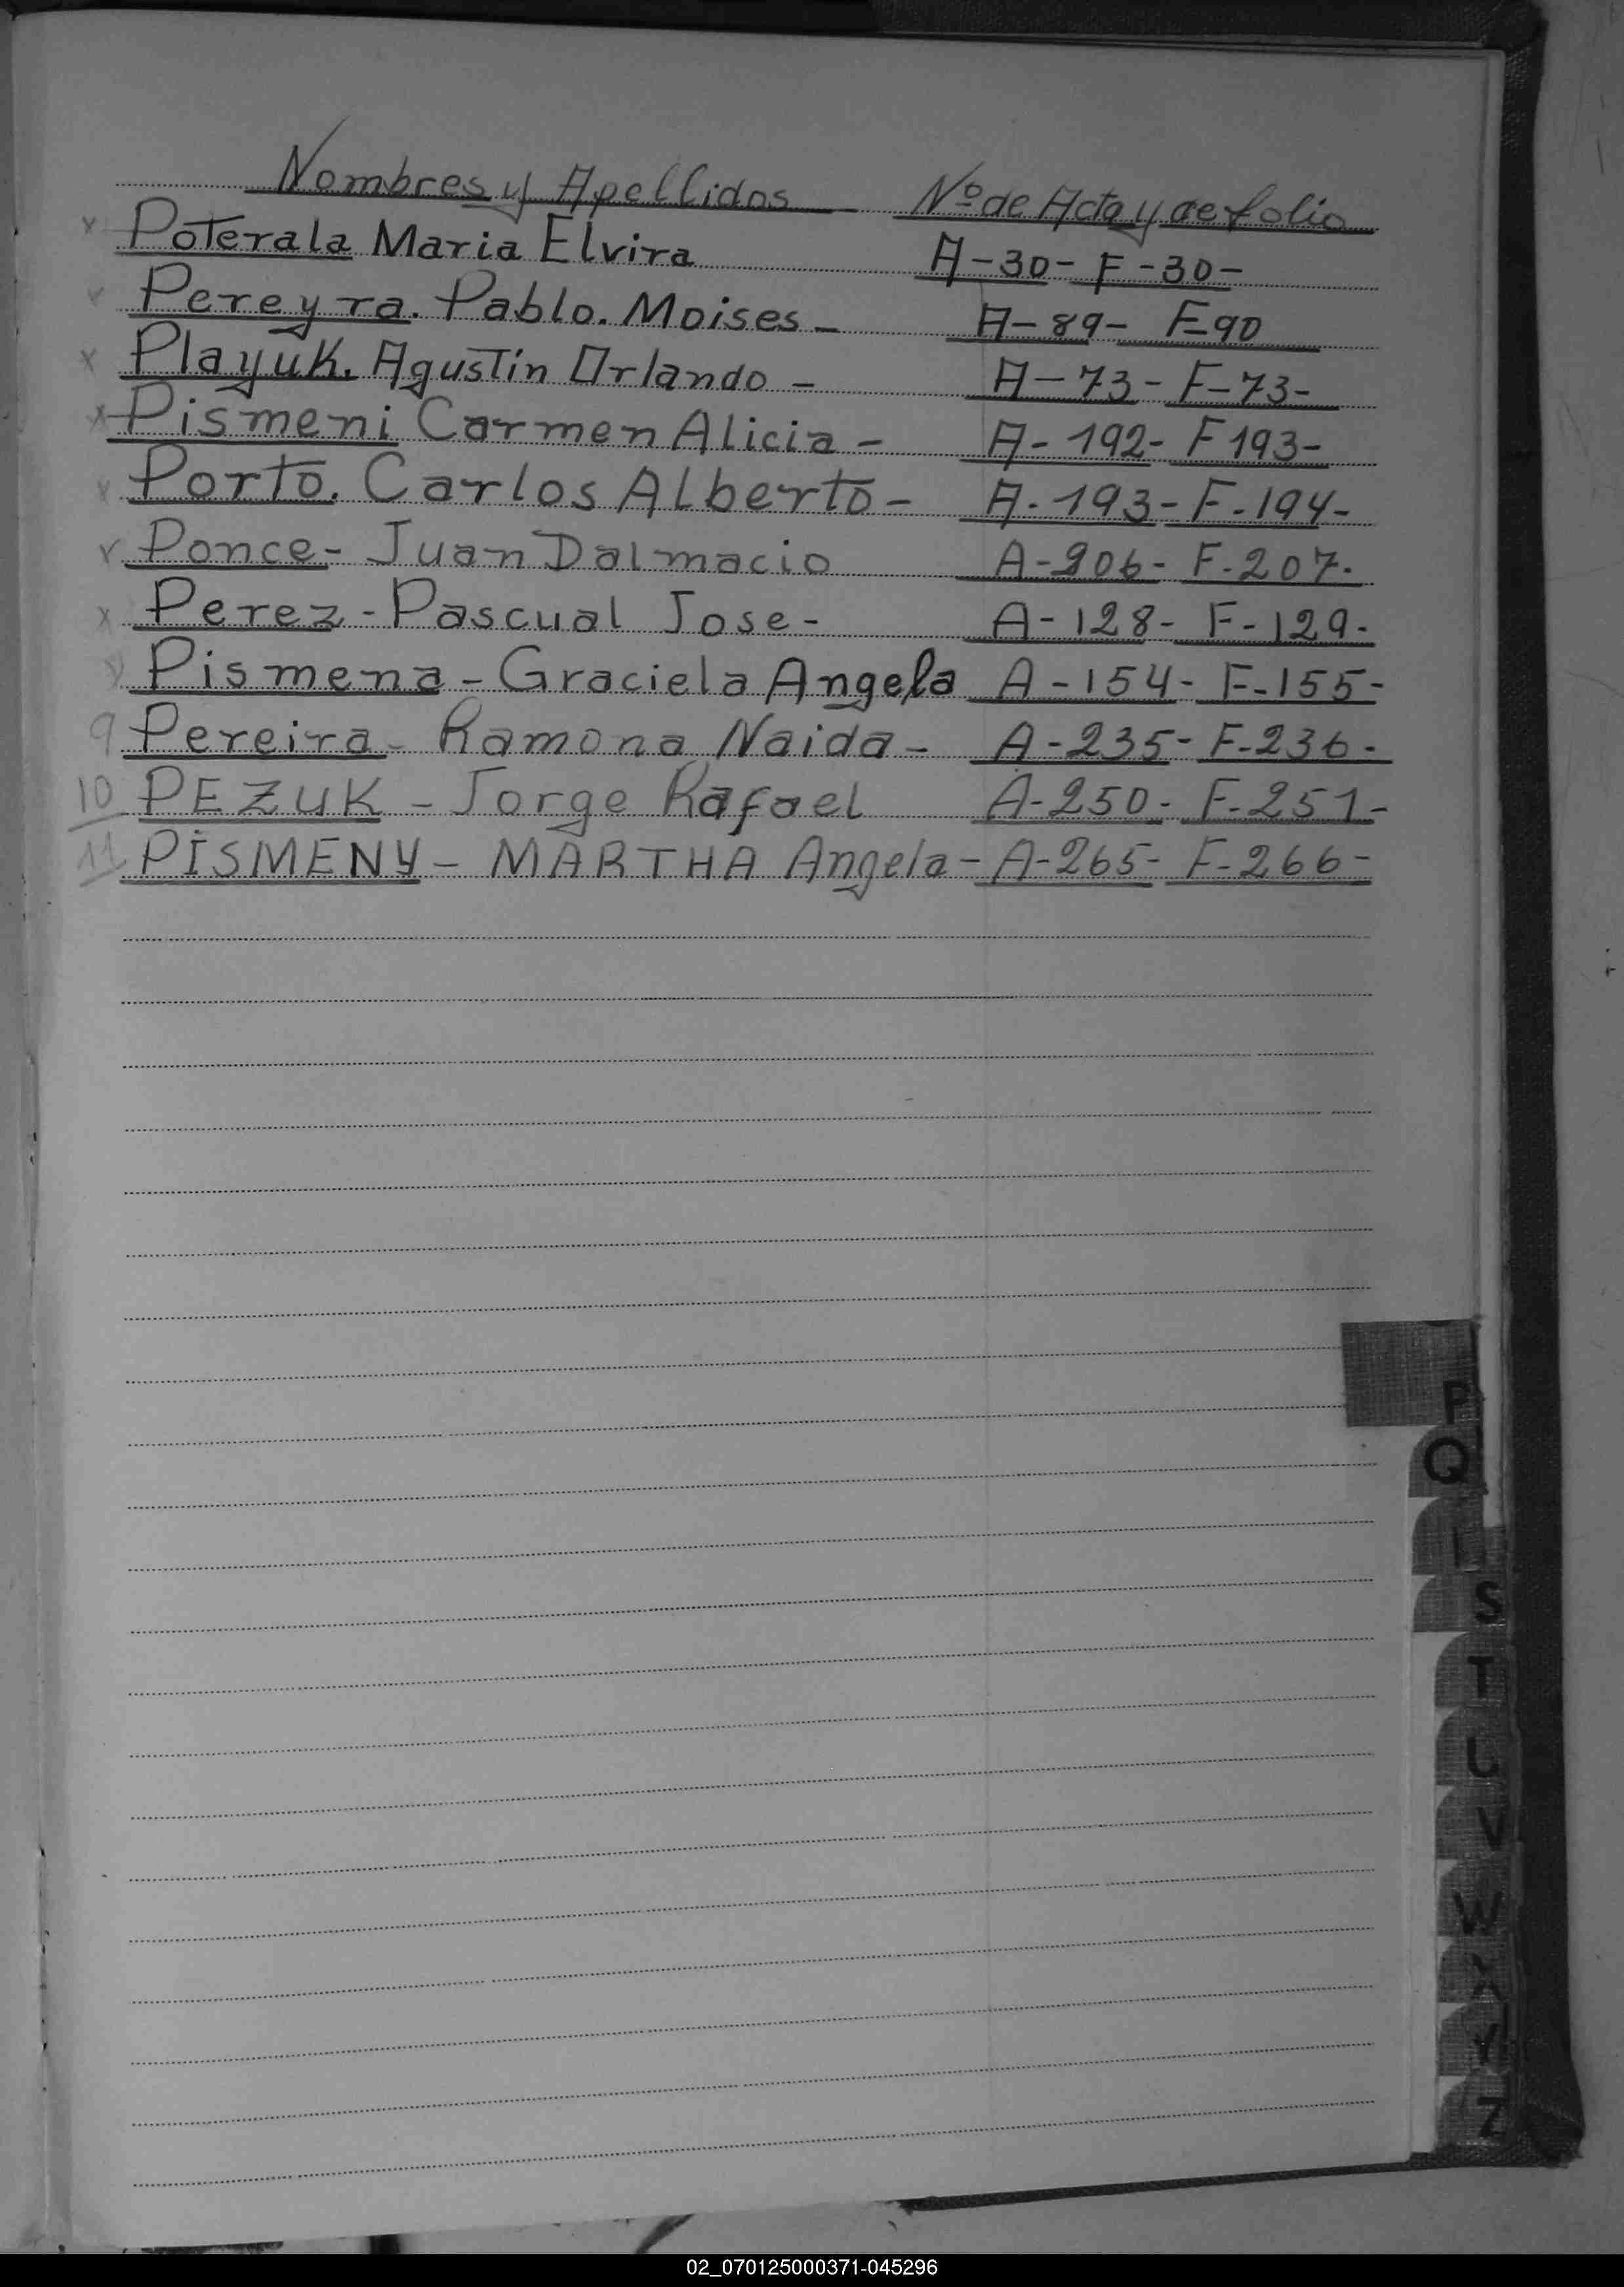 Nombres y Apellidos Nº de Acta y de folio
x Poterala Maria Elvira A-30- F-30-
v Pereyra. Pablo. Moises- A-89- F-90
x Playuk. Agustin Orlando- A-73- F-73-
x Pismeni Carmen Alicia- A-192- F 193-
x Porto. Carlos Alberto- A-193- F-194-
v Ponce- Juan Dalmacio A-206- F-207.
x Perez- Pascual Jose- A-128- F-129-
Pismena- Graciela Angela A-154- F-155-
9 Pereira- Ramona Naida- A-235- F-236-
10 PEZUK- Jorge Rafael A-250- F-251-
11 PISMENY- MARTHA Angela- A-265- F-266-
P
Q
S
T
U
V
W
X
Y
Z
02_070125000371-045296